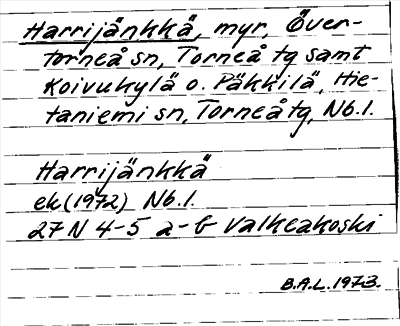 Harrijänkkä, myr, Över-
torneå sn, Torneå tg samt
Koivukylä o. Päkkilä, Hie-
taniemi sn, Torneå tg, Nb.l.
Harrijänkkä
ek (1972) Nb.l.
27 N 4-5 a-b Valkeakoski
B.A.L. 1973.